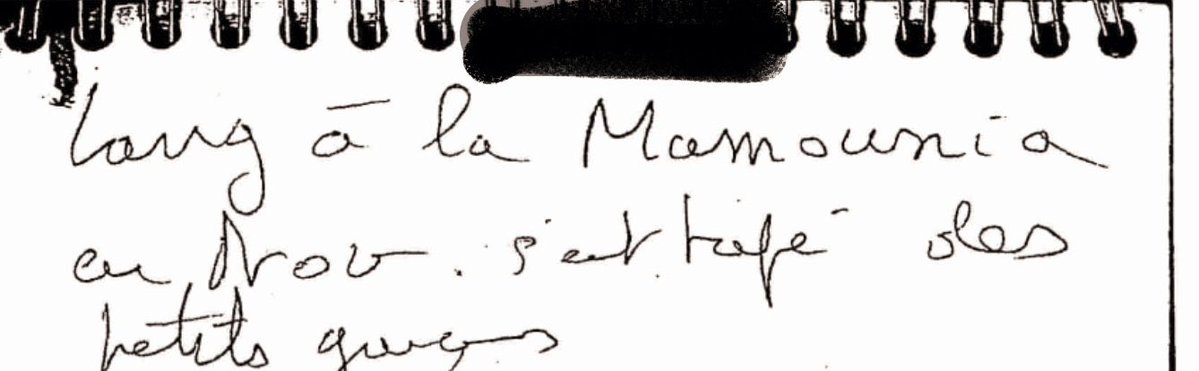 Lang à la Mamounia
en Nov. s'est tapé des
petits garçons